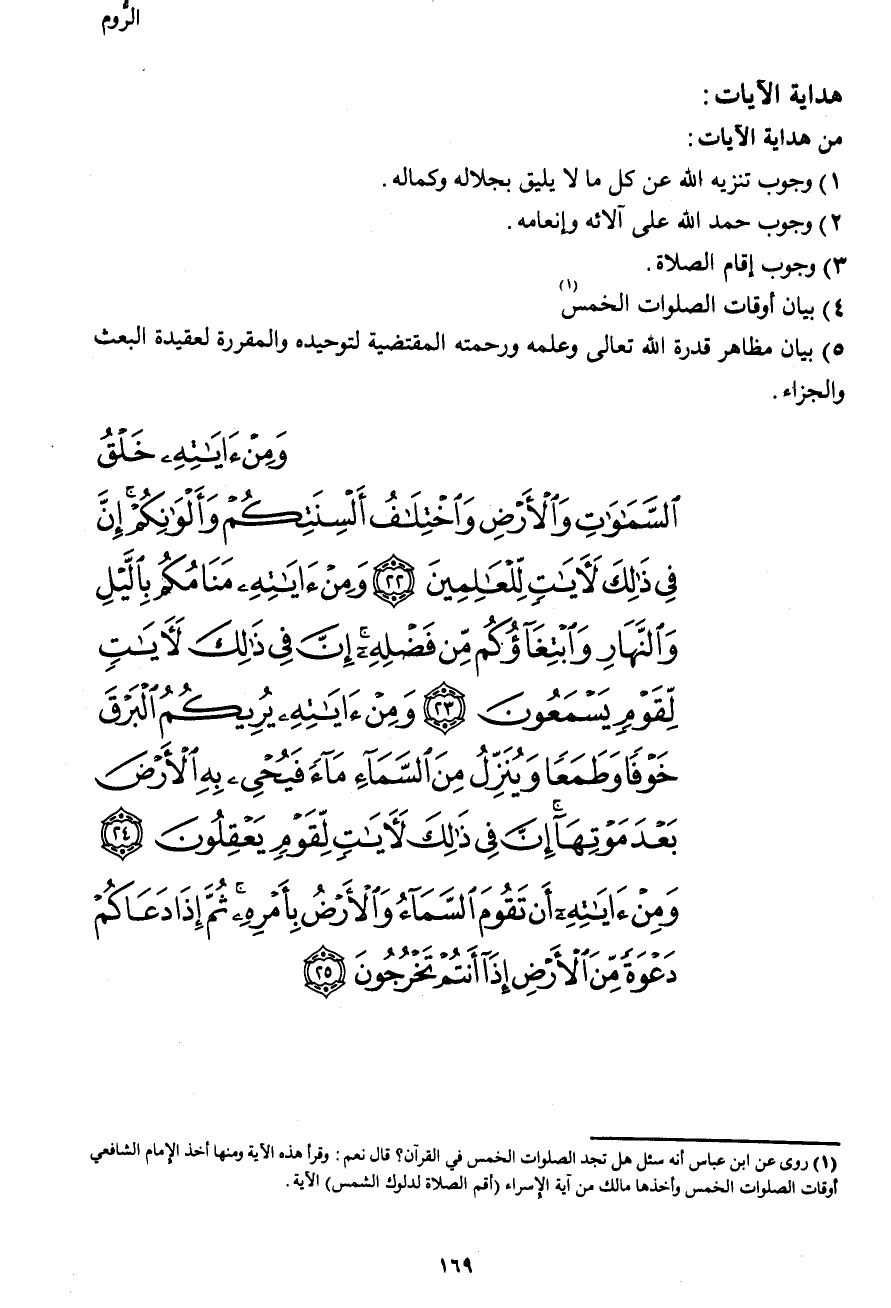 الرُّوم
هداية الآيات :
من هداية الآيات :
١) وجوب تنزيه الله عن كل ما لا يليق بجلاله وكماله .
٢) وجوب حمد الله على آلائه وإنعامه .
٣) وجوب إقام الصلاة .
٤) بيان أوقات الصلوات الخمس(١)
٥) بيان مظاهر قدرة الله تعالى وعلمه ورحمته المقتضية لتوحيده والمقررة لعقيدة البعث
والجزاء .
وَمِنْ ءَايَٰتِهِۦ خَلْقُ
ٱلسَّمَٰوَٰتِ وَٱلْأَرْضِ وَٱخْتِلَٰفُ أَلْسِنَتِكُمْ وَأَلْوَٰنِكُمْ ۚ إِنَّ
فِى ذَٰلِكَ لَـَٔايَٰتٍ لِّلْعَٰلِمِينَ ٢٢ وَمِنْ ءَايَٰتِهِۦ مَنَامُكُم بِٱلَّيْلِ
وَٱلنَّهَارِ وَٱبْتِغَآؤُكُم مِّن فَضْلِهِۦٓ ۚ إِنَّ فِى ذَٰلِكَ لَـَٔايَٰتٍ
لِّقَوْمٍ يَسْمَعُونَ ٢٣ وَمِنْ ءَايَٰتِهِۦ يُرِيكُمُ ٱلْبَرْقَ
خَوْفًا وَطَمَعًا وَيُنَزِّلُ مِنَ ٱلسَّمَآءِ مَآءً فَيُحْىِۦ بِهِ ٱلْأَرْضَ
بَعْدَ مَوْتِهَآ ۚ إِنَّ فِى ذَٰلِكَ لَـَٔايَٰتٍ لِّقَوْمٍ يَعْقِلُونَ ٢٤
وَمِنْ ءَايَٰتِهِۦٓ أَن تَقُومَ ٱلسَّمَآءُ وَٱلْأَرْضُ بِأَمْرِهِۦ ۚ ثُمَّ إِذَا دَعَاكُمْ
دَعْوَةً مِّنَ ٱلْأَرْضِ إِذَآ أَنتُمْ تَخْرُجُونَ ٢٥
(١) روى عن ابن عباس أنه سئل هل تجد الصلوات الخمس في القرآن؟ قال نعم : وقرأ هذه الآية ومنها أخذ الإمام الشافعي
أوقات الصلوات الخمس وأخذها مالك من آية الإسراء (أقم الصلاة لدلوك الشمس) الآية .
١٦٩